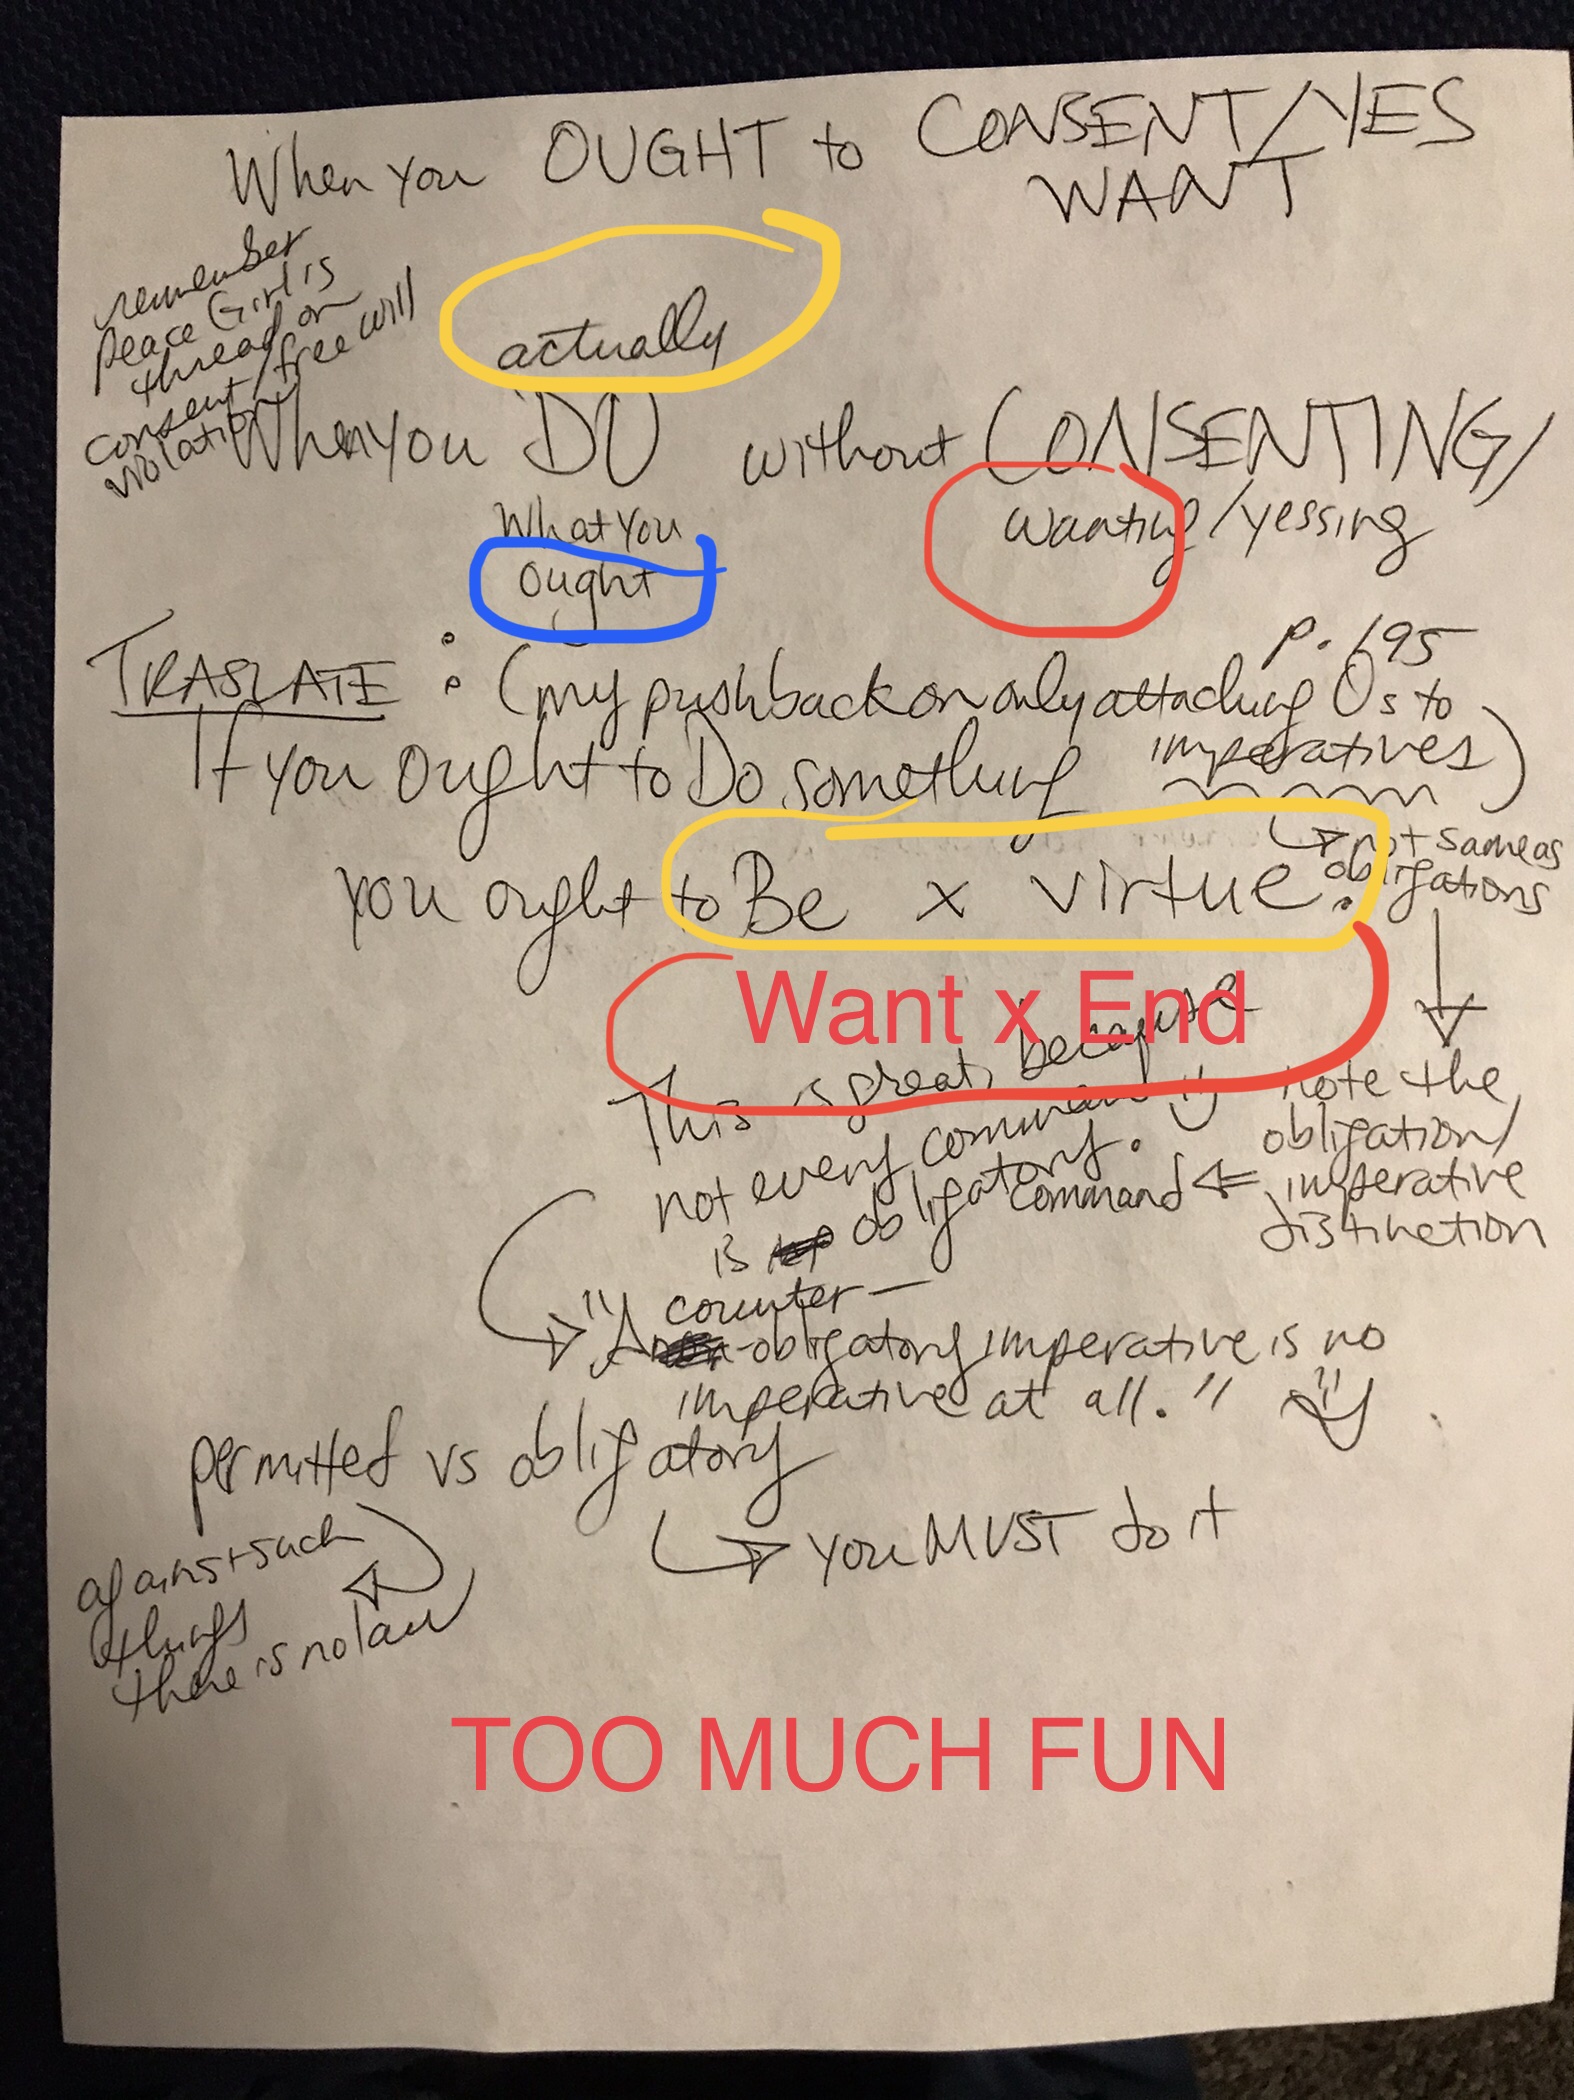 When you OUGHT to CONSENT/YES
WANT
remember
Peace Girl is
thread on
consent/free will
violation
actually
When you DO without CONSENTING/
What You
ought
wanting/yessing
p. 195
TRASLATE: (my pushback on only attaching Os to
imperatives)
If you ought to Do something
not same as
obligations
you ought to Be x virtue.
Want x End
This is great, because
not every command
is obligatory.
note the
obligation/
imperative
distinction
command
counter-
"A -obligatory imperative is no
imperative at all."
permitted vs obligatory
you MUST do it
against such
things
there is no law
TOO MUCH FUN